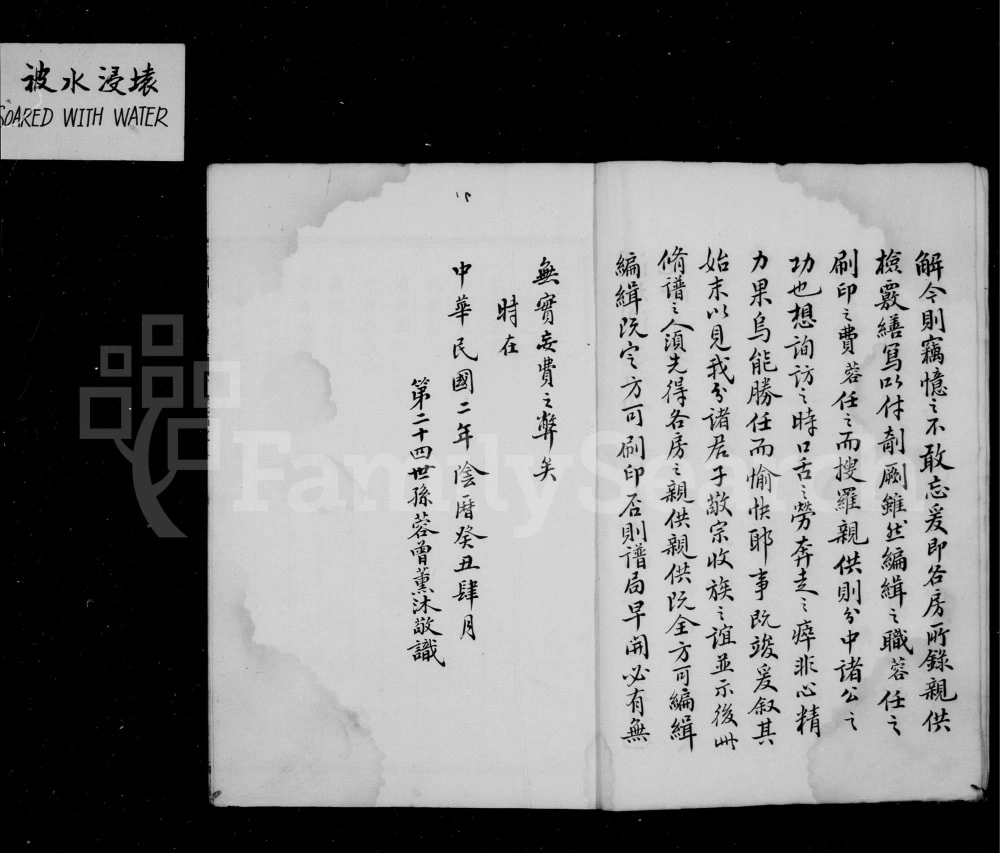 被水浸壞
SOARED WITH WATER
解令則竊憶之不敢忘爰即各房所錄親供
檢覈繕寫以付剞劂雖然編緝之職蓉任之
刷印之費蓉任之而搜羅親供則分中諸公之
功也想詢訪之時口舌之勞奔走之瘁非心精
力果烏能勝任而愉快耶事既竣爰叙其
始末以見我分諸君子敬宗收族之誼並示後世
脩譜之人須先得各房之親供親供既全方可編緝
編緝既定方可刷印否則譜局早開必有無
無實妄費之弊矣
時在
中華民國二年陰曆癸丑肆月
第二十四世孫蓉曾薰沐敬識
FamilySearch